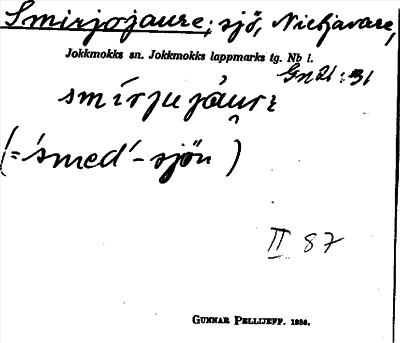 Smirjojaure; sjö, Nietjavare,
Jokkmokks sn. Jokkmokks lappmarks tg. Nb l.
Gn 21:31
smírjujáurɛ
(= 'smed' - sjön)
II 87
GUNNAR PELLIJEFF. 1936.